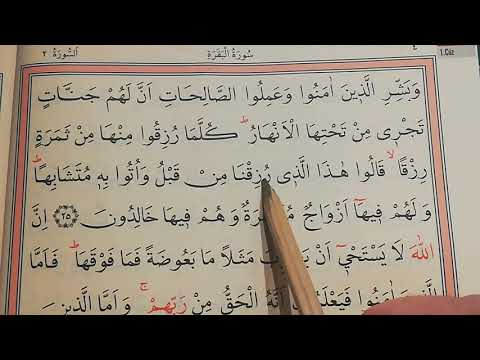 ٤ سُورَةُ الْبَقَرَةِ اَلسُّورَةُ ٢
1.Cüz
وَبَشِّرِ الَّذ۪ينَ اٰمَنُوا وَعَمِلُوا الصَّالِحَاتِ اَنَّ لَهُمْ جَنَّاتٍ
تَجْر۪ى مِنْ تَحْتِهَا الْاَنْهَارُ ۜ كُلَّمَا رُزِقُوا مِنْهَا مِنْ ثَمَرَةٍ
رِزْقًا ۙ قَالُوا هٰذَا الَّذ۪ى رُزِقْنَا مِنْ قَبْلُ وَاُتُوا بِه۪ مُتَشَابِهًا ۜ
وَلَهُمْ ف۪يهَٓا اَزْوَاجٌ وَهُمْ ف۪يهَا خَالِدُونَ ﴿٢٥﴾ اِنَّ
اللّٰهَ لَا يَسْتَحْـي۪ٓ اَنْ مَثَلًا مَا بَعُوضَةً فَمَا فَوْقَهَا ۜ فَاَمَّا
اٰمَنُوا اَنَّهُ الْحَقُّ مِنْ رَبِّهِمْ ۚ وَاَمَّا الَّذ۪ينَ